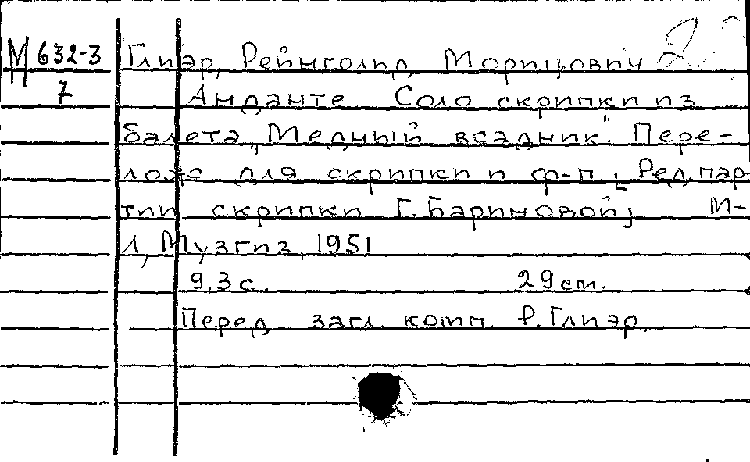 М 632-3 Глиэр, Рейнгольд Морицович
7 Анданте Соло скрипки из
балета „Медный всадник". Пере-
лож. для скрипки и ф-п [Ред. пар
тии скрипки Г. Бариновой] М-
Л, Музгиз, 1951
9,3 с. 29 cm.
Перед загл. комп. Р. Глиэр.